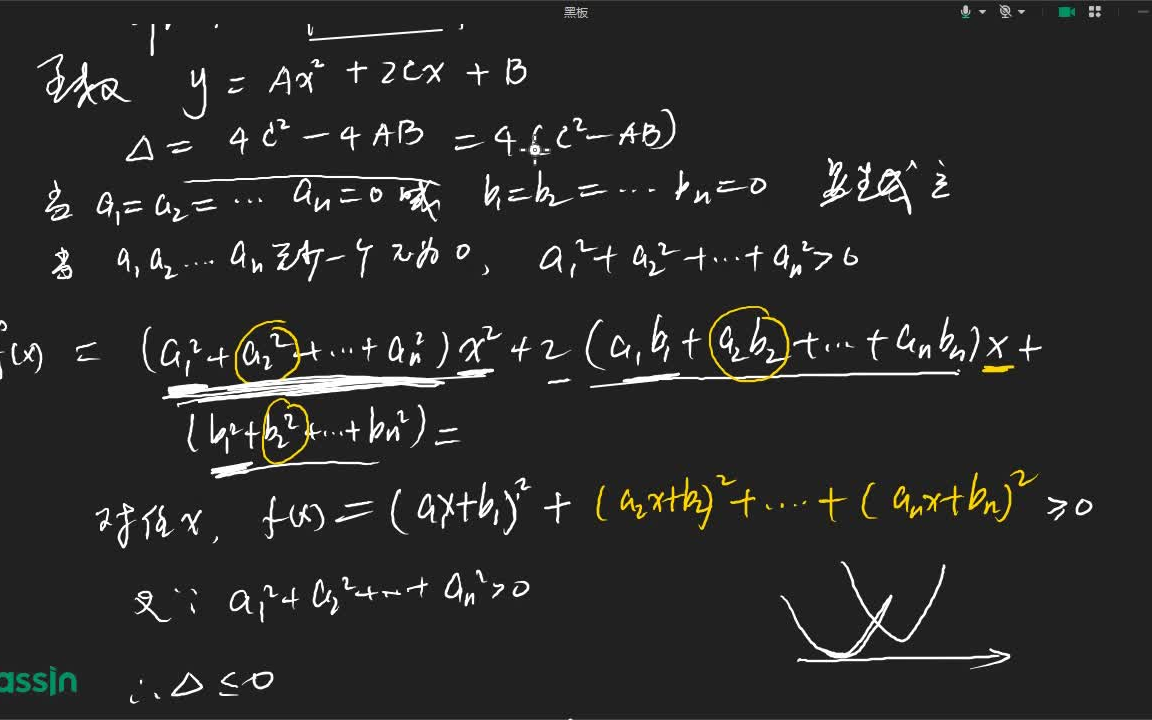 黑板
y = Ax² + 2Cx + B
Δ = 4C² - 4AB = 4(C² - AB)
当 a₁=a₂=⋯ aₙ=0 或 b₁=b₂=⋯ bₙ=0 显然成立
当 a₁ a₂ ⋯ aₙ 至少一个不为0, a₁²+a₂²+⋯+aₙ²>0
f(x) = (a₁²+a₂²+⋯+aₙ²)x²+2(a₁b₁+a₂b₂+⋯+aₙbₙ)x+
(b₁²+b₂²+⋯+bₙ²)=
对任x, f(x)=(a₁x+b₁)²+(a₂x+b₂)²+⋯+(aₙx+bₙ)² ≥0
又∵ a₁²+a₂²+⋯+aₙ²>0
assin
∴Δ≤0